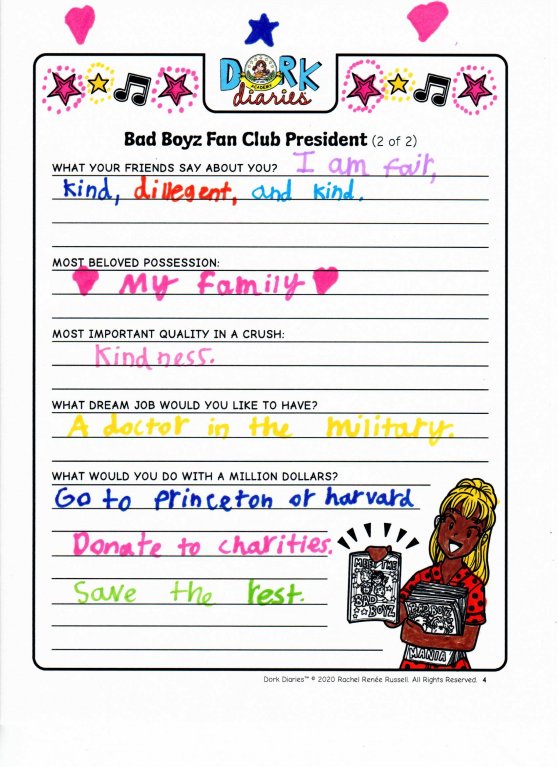 DORK
ACADEMY
diaries
Bad Boyz Fan Club President (2 of 2)
WHAT YOUR FRIENDS SAY ABOUT YOU? I am fair,
kind, dillegent, and kind.
MOST BELOVED POSSESSION:
My Family
MOST IMPORTANT QUALITY IN A CRUSH:
Kindness.
WHAT DREAM JOB WOULD YOU LIKE TO HAVE?
A doctor in the military.
WHAT WOULD YOU DO WITH A MILLION DOLLARS?
Go to princeton or harvard
Donate to charities.
Save the rest.
MEET THE
BAD
BOYZ
BAD BOYZ
MANIA
Dork Diaries™ © 2020 Rachel Renée Russell. All Rights Reserved. 4